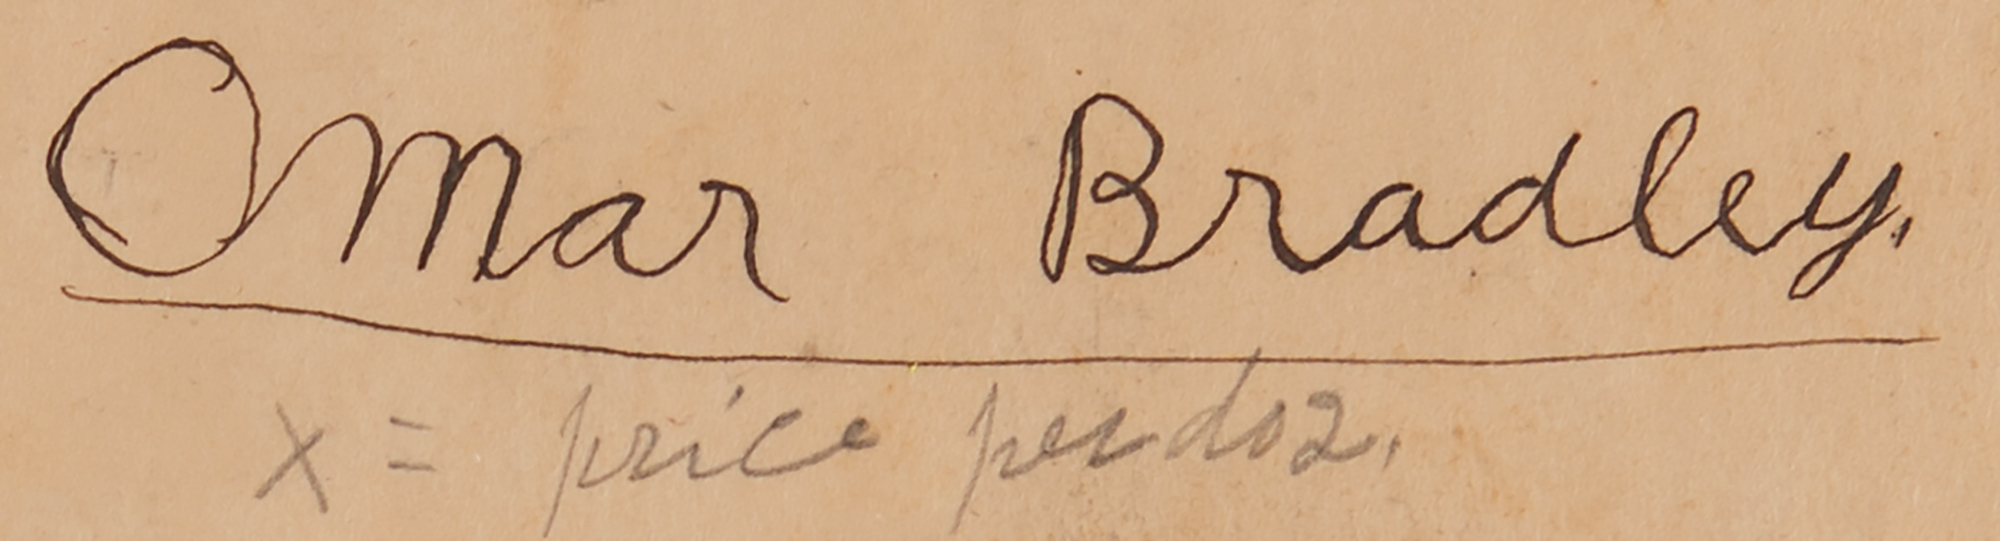 Omar Bradley.
x = price per doz.